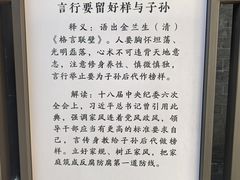 言行要留好样与子孙
释义：语出金兰生（清）
《格言联璧》。人要胸怀坦荡、
光明磊落，心术不可违背天地意
志，注意修身养性、慎微慎独，
言行举止要为子孙后代作榜样。
解读：十八届中央纪委六次
全会上，习近平总书记曾引用此
典，强调家风连着党风政风，领
导干部应当有更高的标准要求自
己，言传身教给子孙后代做榜
样。立好家规、树正家风，把家
庭筑成反腐防腐第一道防线。